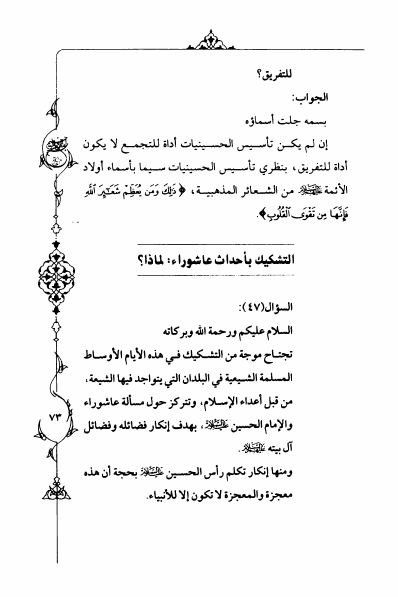 للتفريق؟
الجواب:
بسمه جلت أسماؤه
إن لم يكن تأسيس الحسينيات أداة للتجمع لا يكون
أداة للتفريق، بنظري تأسيس الحسينيات سيما بأسماء أولاد
الأئمة من الشعائر المذهبية، ﴿ذَلِكَ وَمَن يُعَظِّمْ شَعَائِرَ اللَّهِ
فَإِنَّهَا مِن تَقْوَى الْقُلُوبِ﴾.
التشكيك بأحداث عاشوراء: لماذا؟
السؤال(٤٧):
السلام عليكم ورحمة الله وبركاته
تجتاح موجة من التشكيك في هذه الأيام الأوساط
المسلمة الشيعية في البلدان التي يتواجد فيها الشيعة،
من قبل أعداء الإسلام، وتتركز حول مسألة عاشوراء
والإمام الحسين، بهدف إنكار فضائله وفضائل
آل بيته.
ومنها إنكار تكلم رأس الحسين بحجة أن هذه
معجزة والمعجزة لا تكون إلا للأنبياء.
٧٣